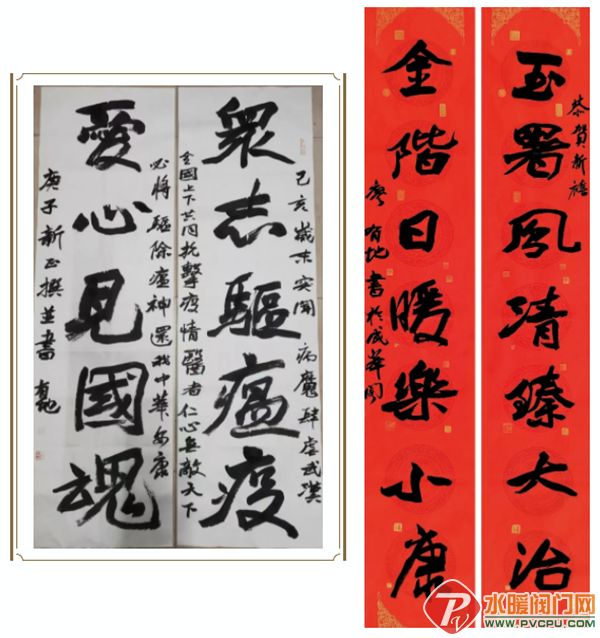 己亥歲末突聞病魔肆虐武漢
衆志驅瘟疫
全國上下共同抗擊疫情醫者仁心無敵天下
必將驅除瘟神還我中華安康
愛心見國魂
庚子新正撰並書 有地
恭賀新禧
玉署風清臻大治
金階日暖樂小康
廖有地書於成華閣
水暖阀门网
WWW.PVCPU.COM